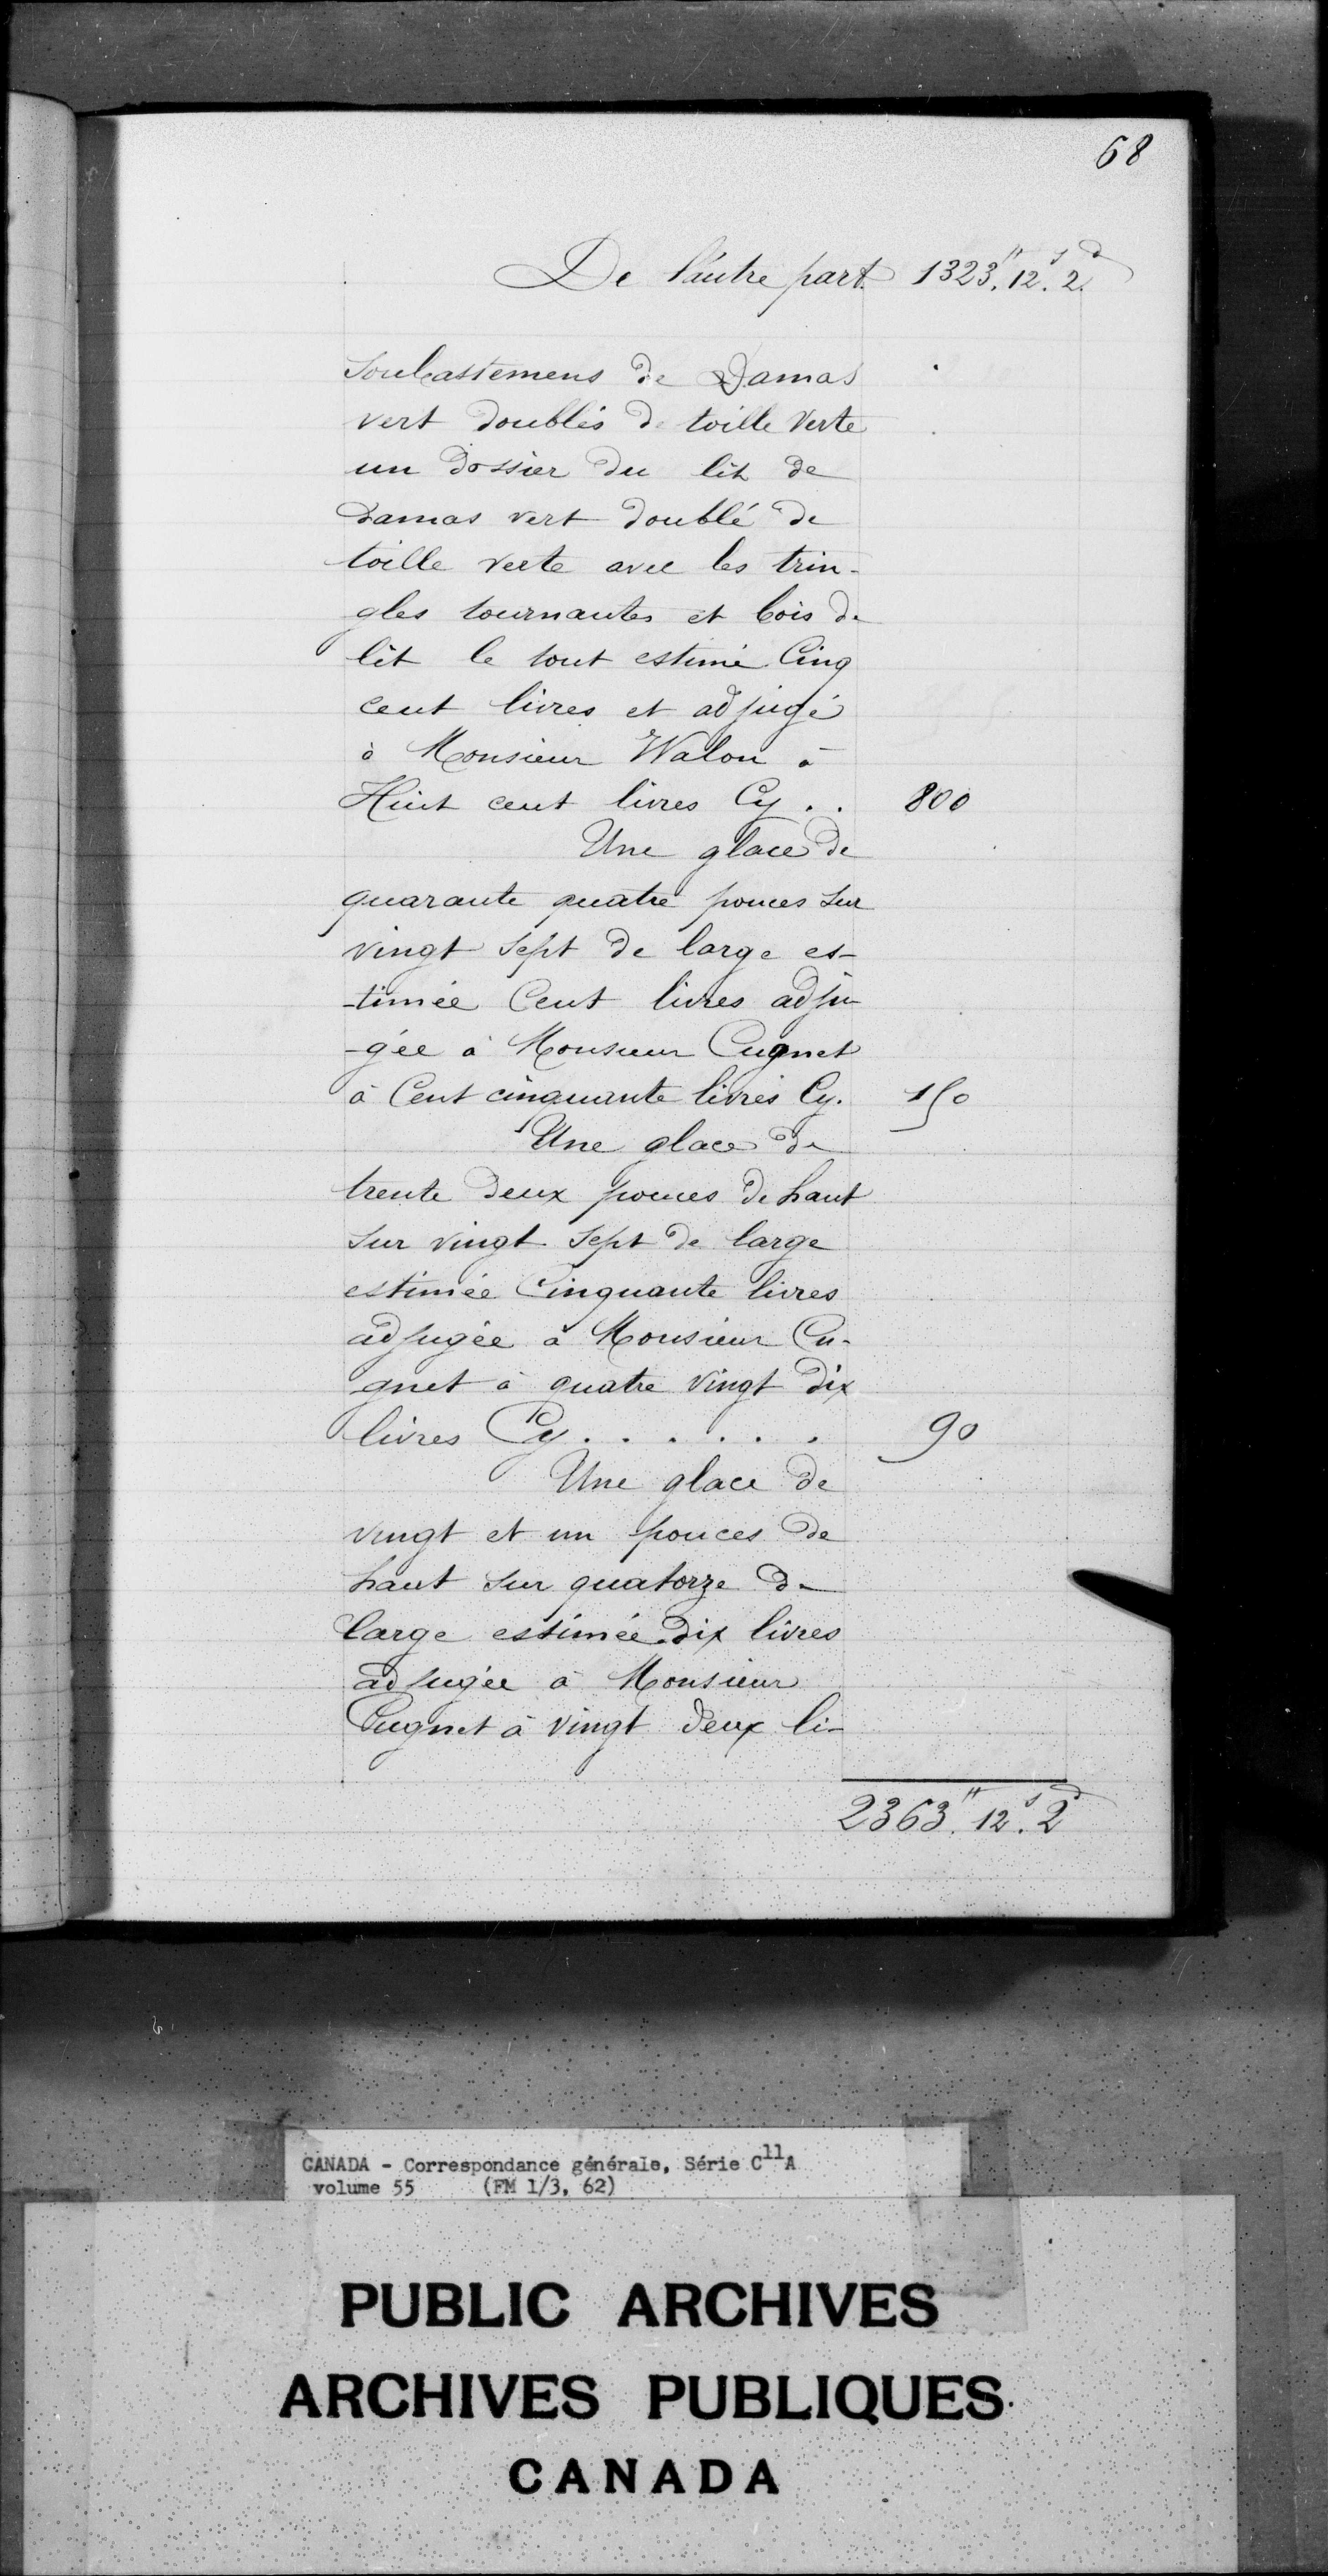 68
De l'autre part. 1323.# 12.s 2.d
Soubastemens de Damas
vert doublés de toille verte
un dossier du lit de
Damas vert doublé de
toille verte avec les trin-
gles tournantes et bois de
lit le tout estimé Cinq
cent livres et adjugé
à Monsieur Walon à
Huit cent livres Cy . . 800
Une glace de
quarante quatre pouces sur
vingt sept de large es-
-timée Cent livres adju-
-gée à Monsieur Cugnet
à Cent cinquante livres Cy. 150
Une glace de
trente deux pouces de haut
sur vingt sept de large
estimée Cinquante livres
adjugée à Monsieur Cu-
gnet à quatre vingt dix
livres Cy . . . . . . 90
Une glace de
vingt et un pouces de
haut sur quatorze de
large estimée dix livres
adjugée à Monsieur
Cugnet à vingt deux li-
2363.# 12.s 2d
CANADA - Correspondance générale, Série C11A
volume 55 (FM 1/3, 62)
PUBLIC ARCHIVES
ARCHIVES PUBLIQUES
CANADA